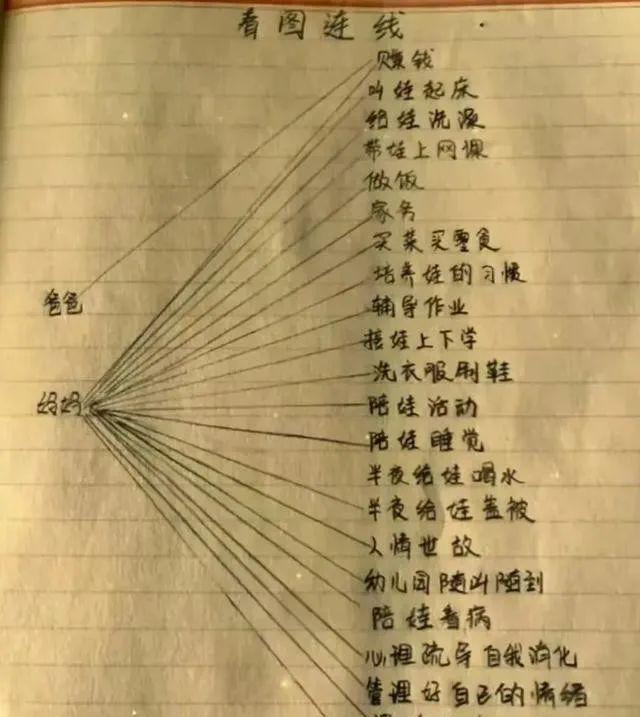 看图连线
赚钱
叫娃起床
给娃洗澡
带娃上网课
做饭
家务
买菜买零食
培养娃的习惯
爸爸
辅导作业
接娃上下学
洗衣服刷鞋
妈妈
陪娃活动
陪娃睡觉
半夜给娃喝水
半夜给娃盖被
人情世故
幼儿园随叫随到
陪娃看病
心理疏导自我消化
管理好自己的情绪